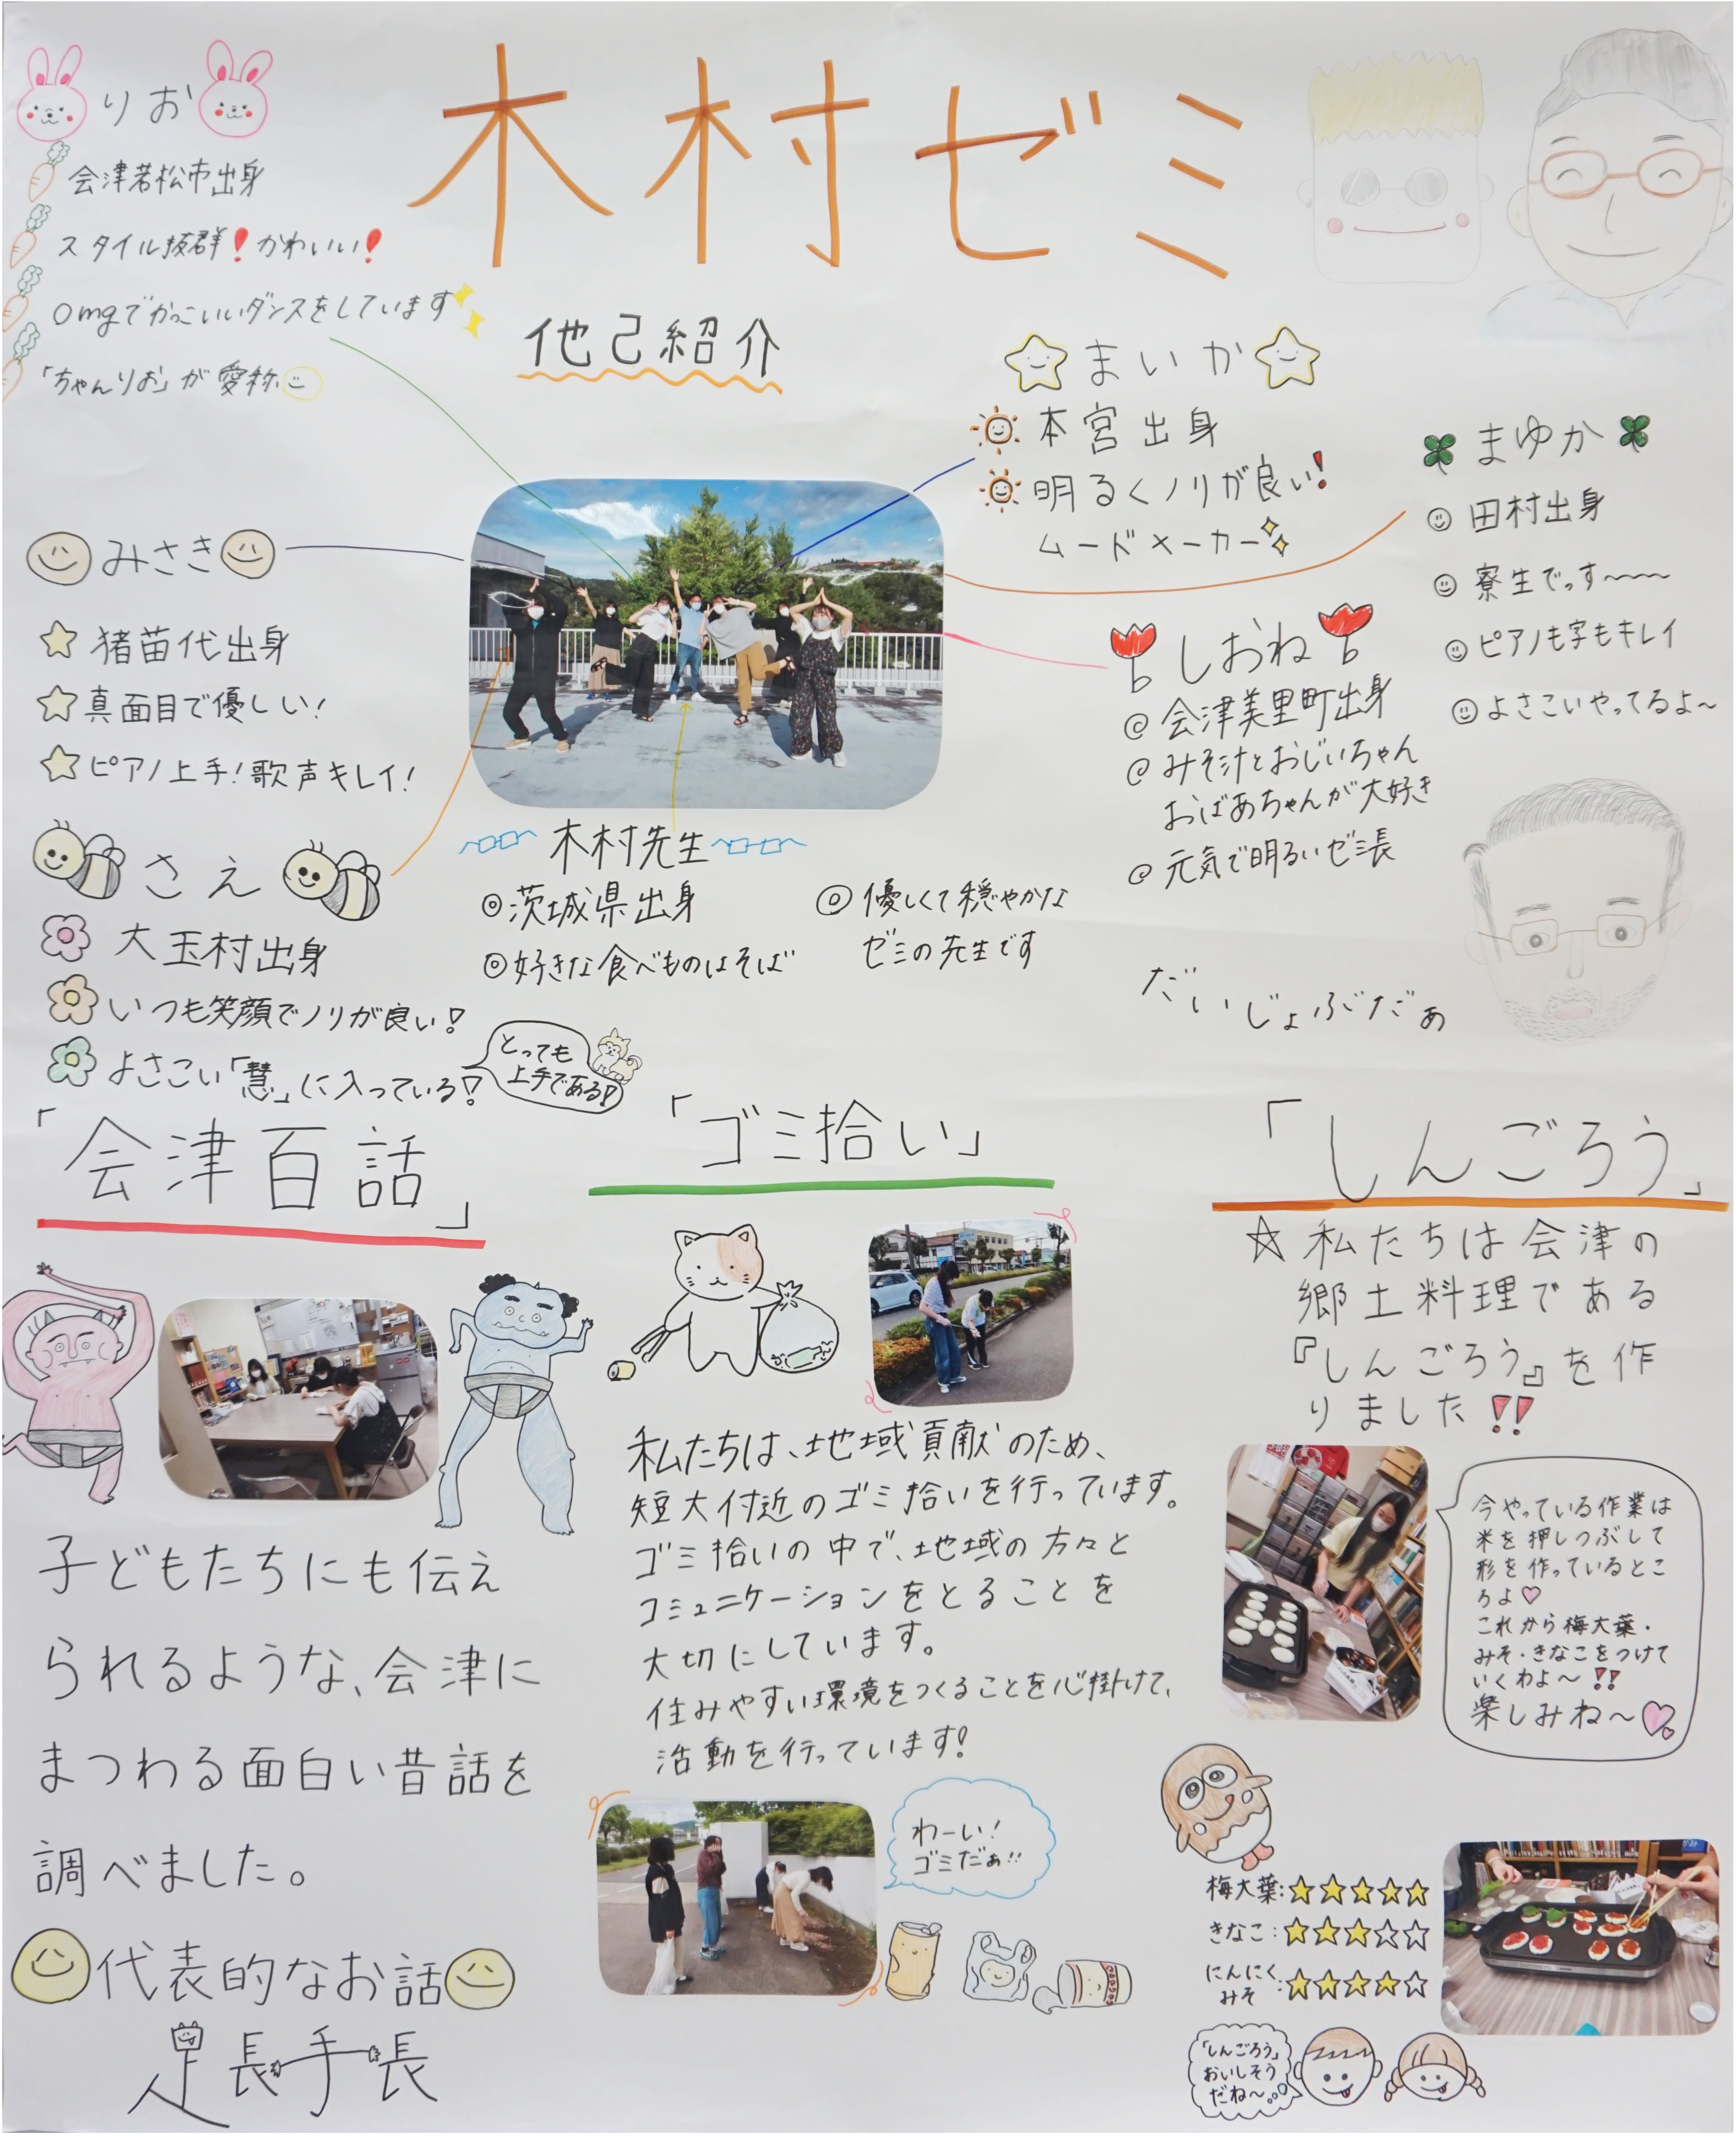 木村ゼミ
りお
会津若松市出身
スタイル抜群!かわいい!
omgでかっこいいダンスをしています
「ちゃんりお」が愛称
他己紹介
まいか
本宮出身
明るくノリが良い!
ムードメーカー
まゆか
田村出身
寮生でっす〜〜〜
ピアノも字もキレイ
よさこいやってるよ〜
みさき
猪苗代出身
真面目で優しい!
ピアノ上手!歌声キレイ!
しおね
@ 会津美里町出身
@ みそ汁とおじいちゃん
おばあちゃんが大好き
@ 元気で明るいゼミ長
さえ
大玉村出身
いつも笑顔でノリが良い!
よさこい「慧」に入っている!
とっても
上手である!
木村先生
◎茨城県出身
◎好きな食べものはそば
◎優しくて穏やかな
ゼミの先生です
だいじょぶだぁ
「会津百話」
子どもたちにも伝え
られるような、会津に
まつわる面白い昔話を
調べました。
代表的なお話
足長手長
「ゴミ拾い」
私たちは、地域貢献のため、
短大付近のゴミ拾いを行っています。
ゴミ拾いの中で、地域の方々と
コミュニケーションをとることを
大切にしています。
住みやすい環境をつくることを心掛けて、
活動を行っています!
わーい!
ゴミだぁ!!
「しんごろう」
☆私たちは会津の
郷土料理である
『しんごろう』を作
りました!!
今やっている作業は
米を押しつぶして
形を作っているとこ
ろよ♡
これから梅大葉・
みそ・きなこをつけて
いくわよ〜!!
楽しみね〜♡
梅大葉:★★★★★
きなこ:★★★☆☆
にんにく
みそ:★★★★☆
「しんごろう」
おいしそう
だね〜。。